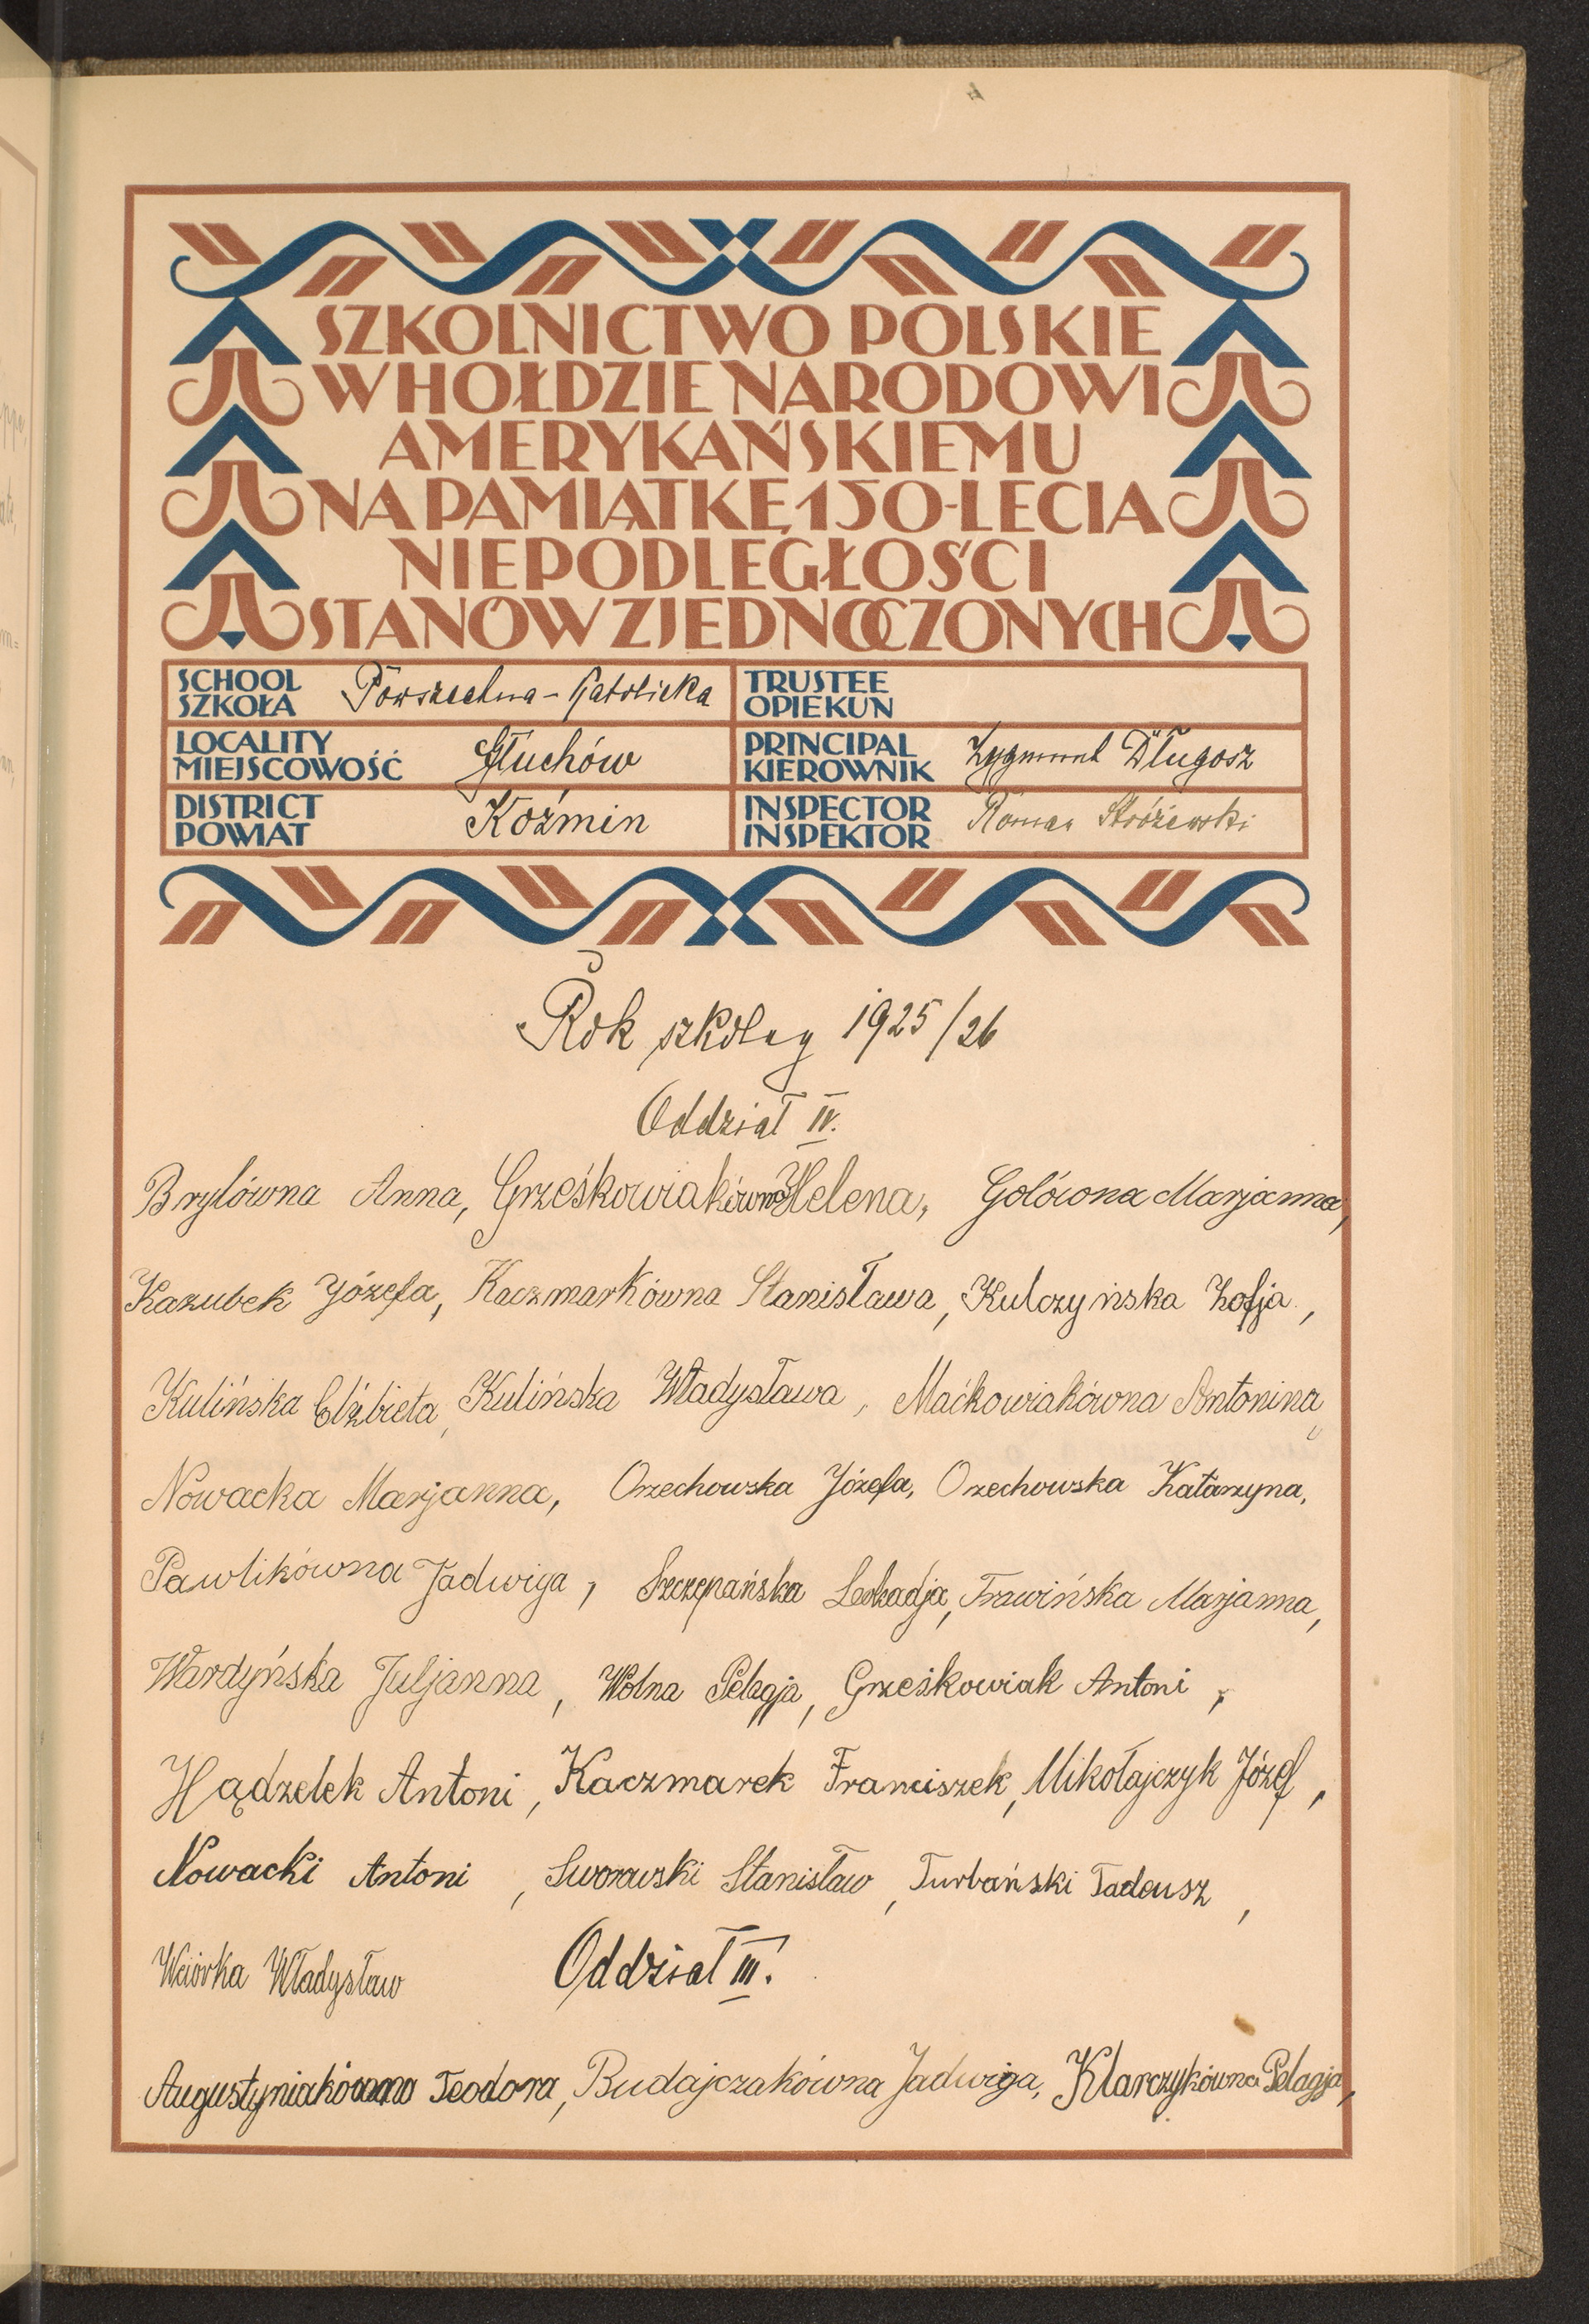 SZKOLNICTWO POLSKIE
W HOŁDZIE NARODOWI
AMERYKAŃSKIEMU
NA PAMIĄTKĘ 150-LECIA
NIEPODLEGŁOŚCI
STANÓW ZJEDNOCZONYCH
SCHOOL SZKOŁA Powszechna-Katolicka TRUSTEE OPIEKUN
LOCALITY MIEJSCOWOŚĆ Głuchów PRINCIPAL KIEROWNIK Zygmunt Długosz
DISTRICT POWIAT Koźmin INSPECTOR INSPEKTOR Roman Stróżewski
Rok szkolny 1925/26
Oddział IV.
Brylówna Anna, Grześkowiakówna Helena, Golówona Marjanna,
Kazubek Józefa, Kaczmarkówna Stanisława, Kulczyńska Zofja,
Kulińska Elżbieta, Kulińska Władysława, Maćkowiakówna Antonina,
Nowacka Marjanna, Orzechowska Józefa, Orzechowska Katarzyna,
Pawlikówna Jadwiga, Szczepańska Leokadja, Trawińska Marjanna,
Wardyńska Juljanna, Wolna Pelagja, Grześkowiak Antoni,
Hądzelek Antoni, Kaczmarek Franciszek, Mikołajczyk Józef,
Nowacki Antoni, Sworowski Stanisław, Turbański Tadeusz,
Wciórka Władysław Oddział III.
Augustyniakówna Teodora, Budajczakówna Jadwiga, Klarczykówna Pelagja,